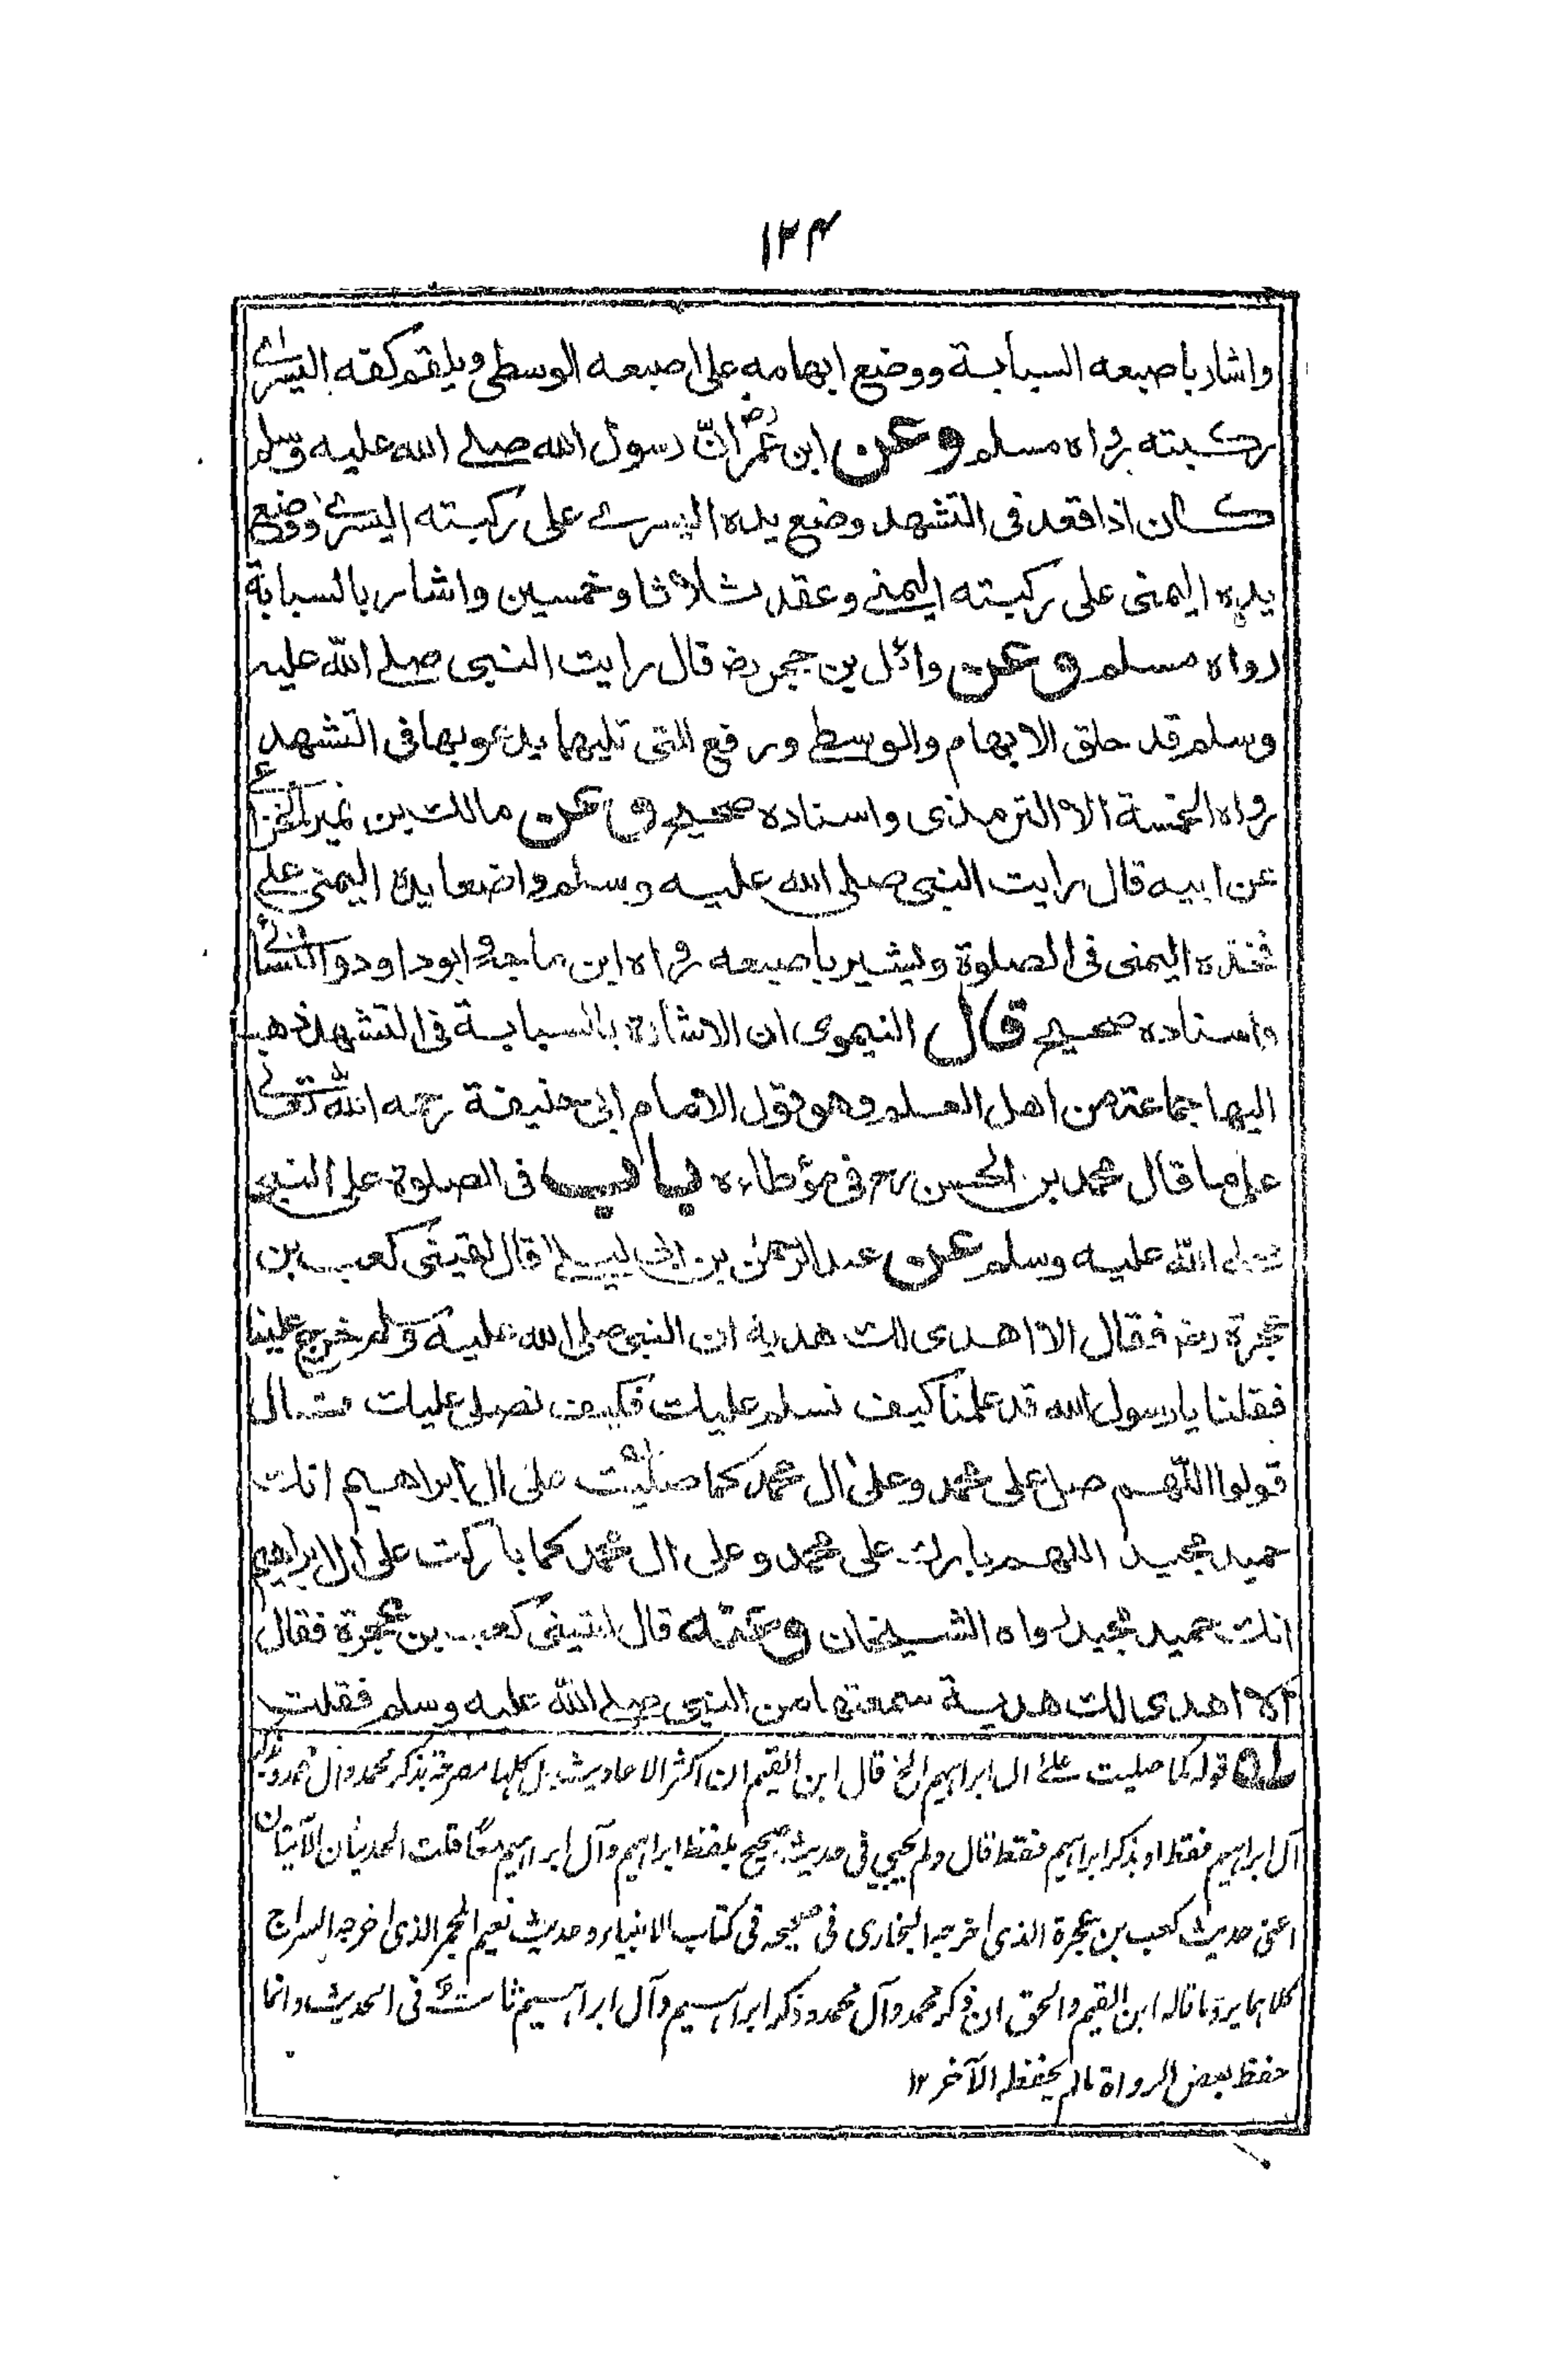 ١٢٣
واشار باصبعه السبابة ووضع ابهامه على اصبعه الوسطى ويلقم كفه اليسرى
ركبته رواه مسلم وعن ابن عمر رض انّ رسول الله صلى الله عليه وسلم
كان اذا قعد فى التشهد وضع يده اليسرى على ركبته اليسرى ووضع
يده اليمنى على ركبته اليمنى وعقد ثلاثا وخمسين واشار بالسبابة
رواه مسلم وعن وائل بن حجر رض قال رايت النبى صلى الله عليه
وسلم قد حلق الابهام والوسطى ورفع التى تليهما يدعو بها فى التشهد
رواه الخمسة الا الترمذى واسناده صحيح وعن مالك بن نمير الخزاعى
عن ابيه قال رايت النبى صلى الله عليه وسلم واضعا يده اليمنى على
فخذه اليمنى فى الصلوة ويشير باصبعه رواه ابن ماجة وابوداود والنسائى
واسناده صحيح قال النيموى ان الاشارة بالسبابة فى التشهد ذهب
اليها جماعة من اهل العلم وهو قول الامام ابى حنيفة رحمه الله تعالى
على ما قال محمد بن الحسن رح فى مؤطاءه باب فى الصلوة على النبى
صلى الله عليه وسلم عن عبد الرحمن بن ابى ليلى قال لقينى كعب بن
عجرة رض فقال الا اهدى لك هدية ان النبى صلى الله عليه وسلم خرج علينا
فقلنا يا رسول الله قد علمنا كيف نسلم عليك فكيف نصلى عليك قال
قولوا اللّهم صل على محمد وعلى ال محمد كما صليت على ال ابراهيم انك
حميد مجيد اللهم بارك على محمد وعلى ال محمد كما باركت على ال ابراهيم
انك حميد مجيد رواه الشيخان وعنه قال لقينى كعب بن عجرة فقال
الا اهدى لك هدية سمعتها من النبى صلى الله عليه وسلم فقلت
قوله كما صليت على ال ابراهيم الخ قال ابن القيم ان اكثر الاحاديث بل كلها مصرحة بذكر محمد وآل محمد وبذكر
آل ابراهيم فقط او بذكر ابراهيم فقط قال ولم يجئ فى حديث صحيح بلفظ ابراهيم وآل ابراهيم معًا قلت الحديثان الآتيان
اعنى حديث كعب بن عجرة الذى اخرجه البخارى فى صحيحه فى كتاب الانبياء وحديث نعيم المجمر الذى اخرجه السراج
كلاهما يرد ما قاله ابن القيم والحق ان ذكر محمد وآل محمد وذكر ابراهيم وآل ابراهيم ثابت فى الحديث وانما
حفظ بعض الرواة ما لم يحفظه الآخر ١٢